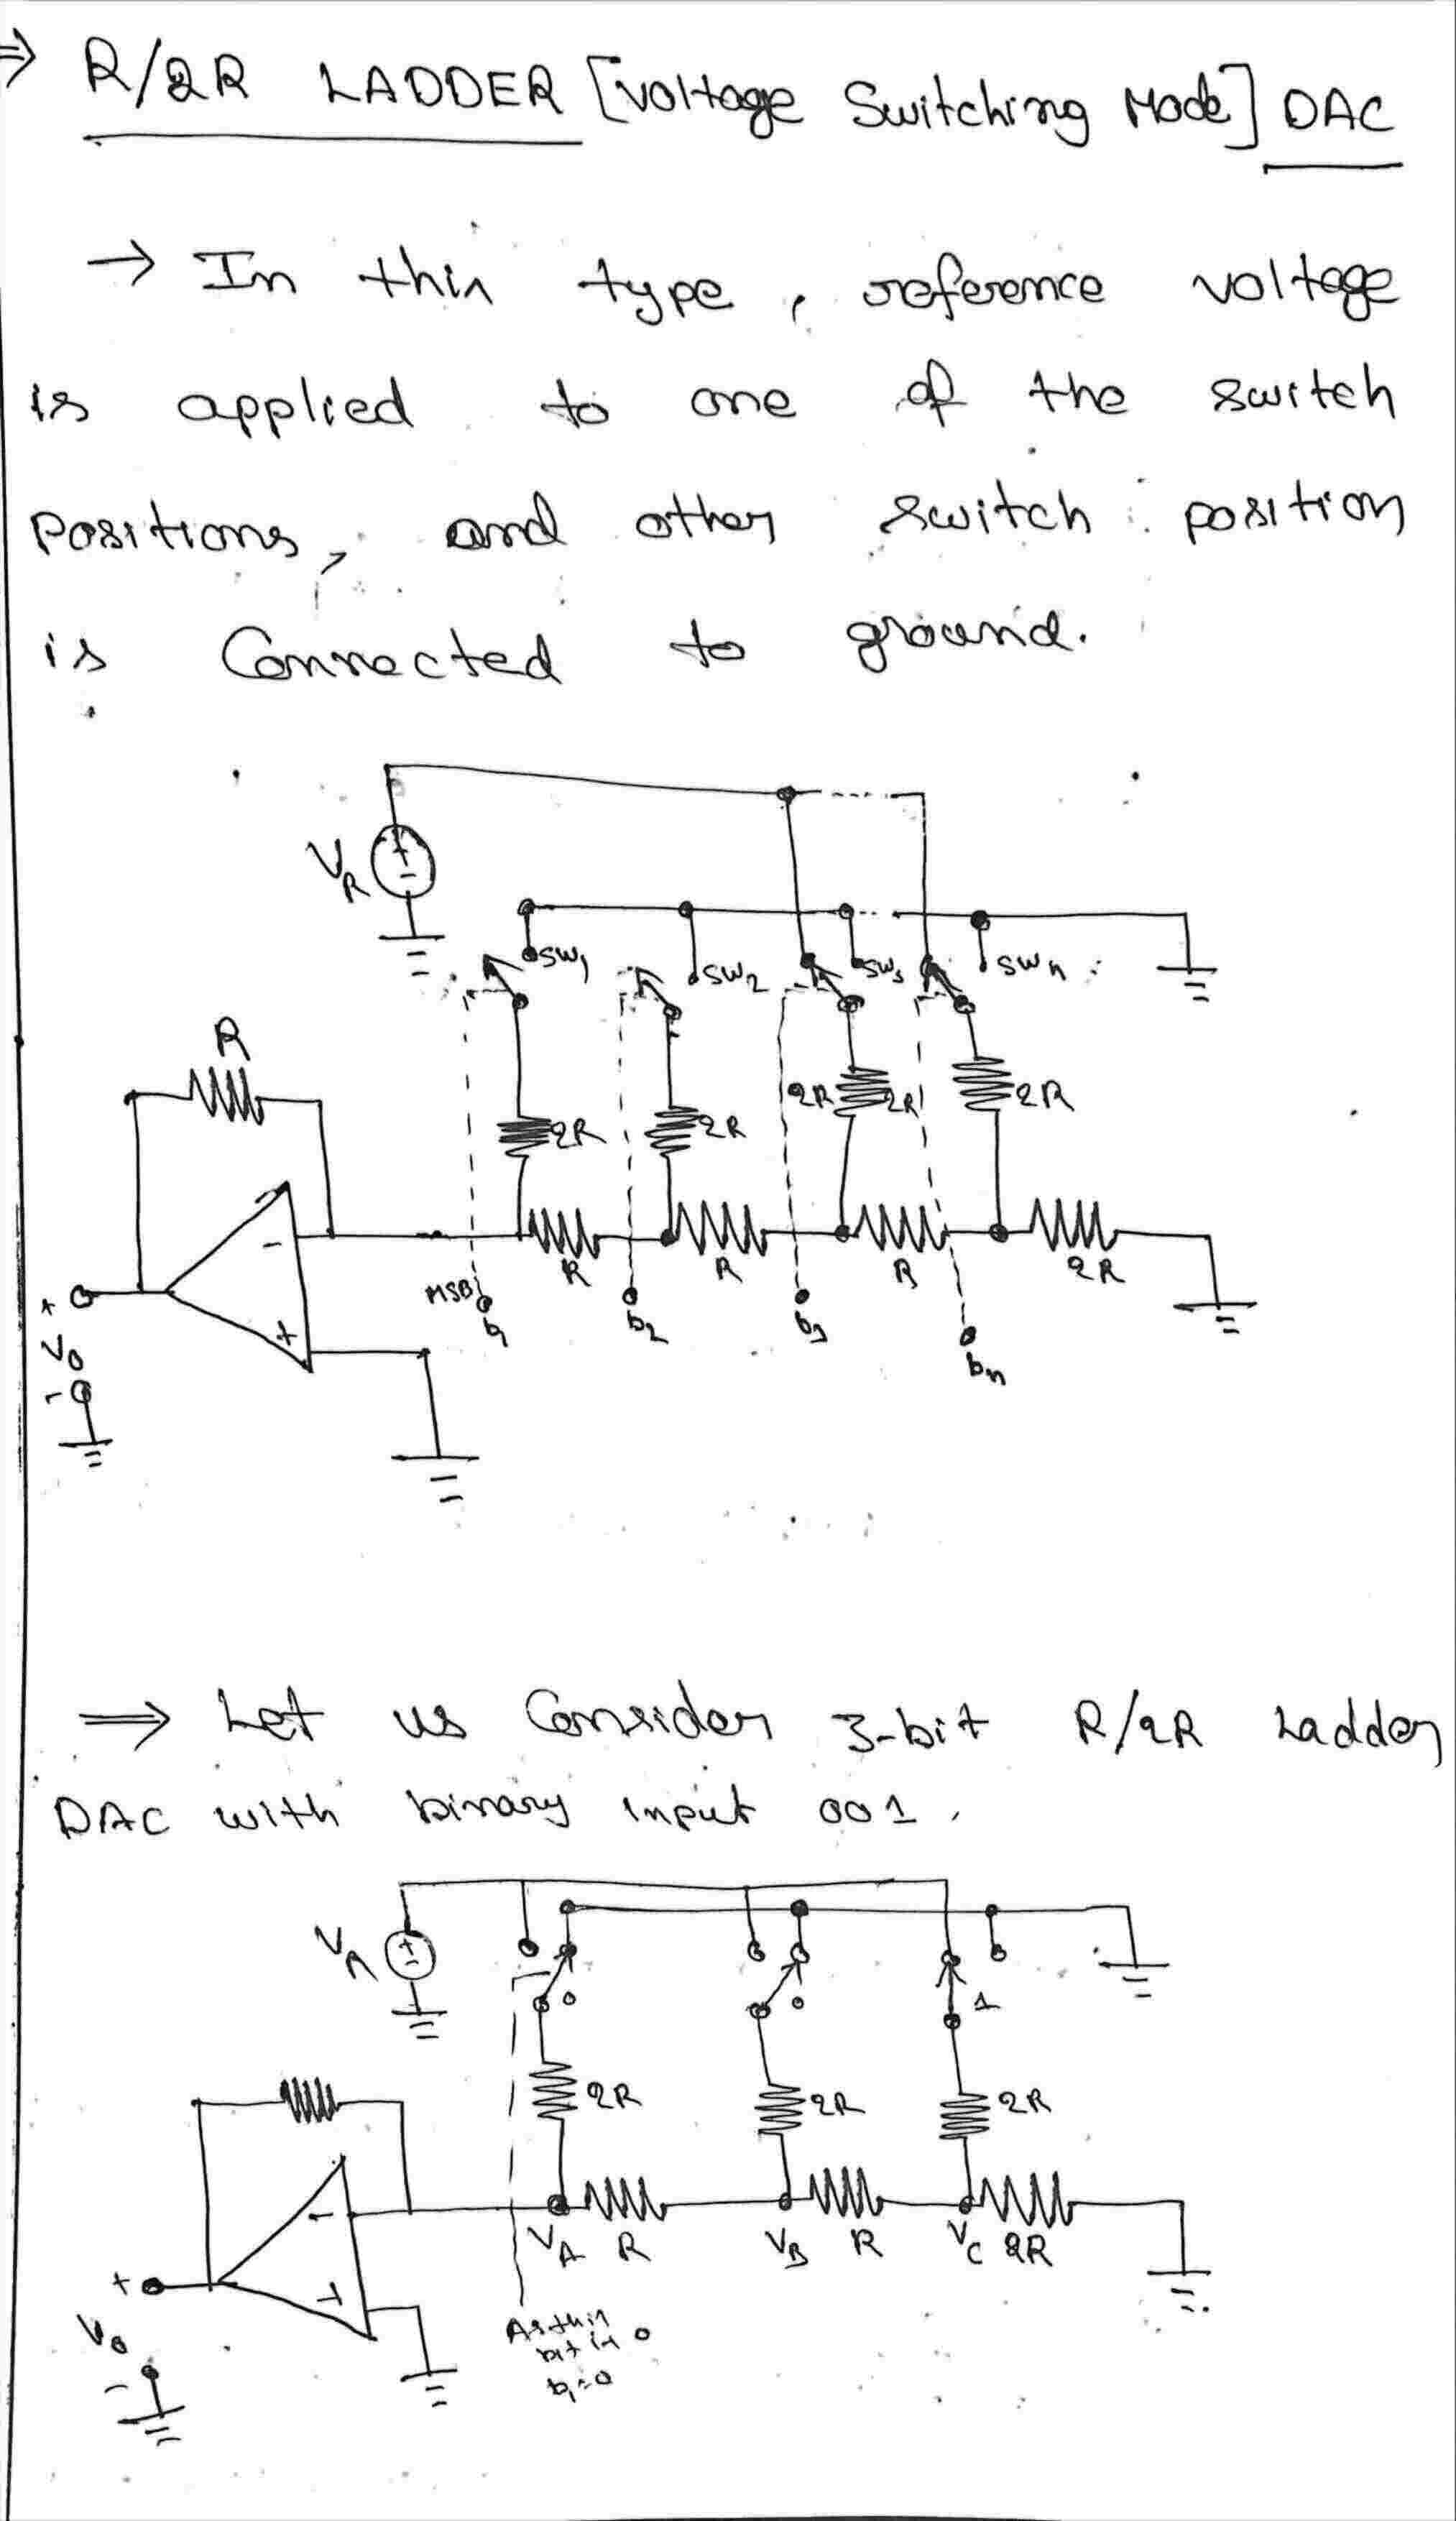 ⇒ R/2R LADDER [Voltage Switching Mode] DAC
→ In this type, reference voltage
is applied to one of the switch
positions, and other switch position
is Connected to ground.
VR + -
SW1 SW2 SW3 SWn
R
2R 2R 2R 2R 2R
-
R R R 2R
+
MSB
b1 b2 b3 bn
+
Vo
-
⇒ Let us Consider 3-bit R/2R Ladder
DAC with binary input 001.
VR + -
0 0 1
2R 2R 2R
-
VA R VB R VC 2R
+
+
Vo
-
As this
bit is 0
b1=0